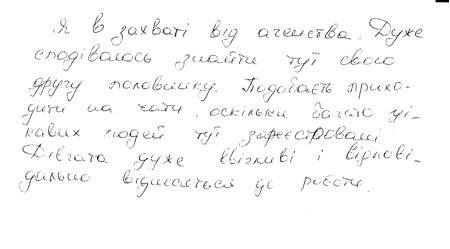 Я в захваті від агенства. Дуже
сподіваюсь знайти тут свою
другу половинку. Подобаєть прихо-
дити на чати, оскільки багато ці-
кавих людей тут зареєстровані.
Дівчата дуже ввічливі і відпові-
дально відносяться до роботи.